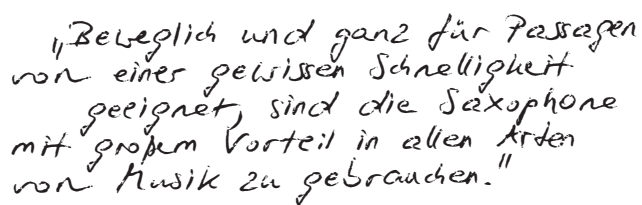 „Beweglich und ganz für Passagen
von einer gewissen Schnelligkeit
geeignet, sind die Saxophone
mit großem Vorteil in allen Arten
von Musik zu gebrauchen."